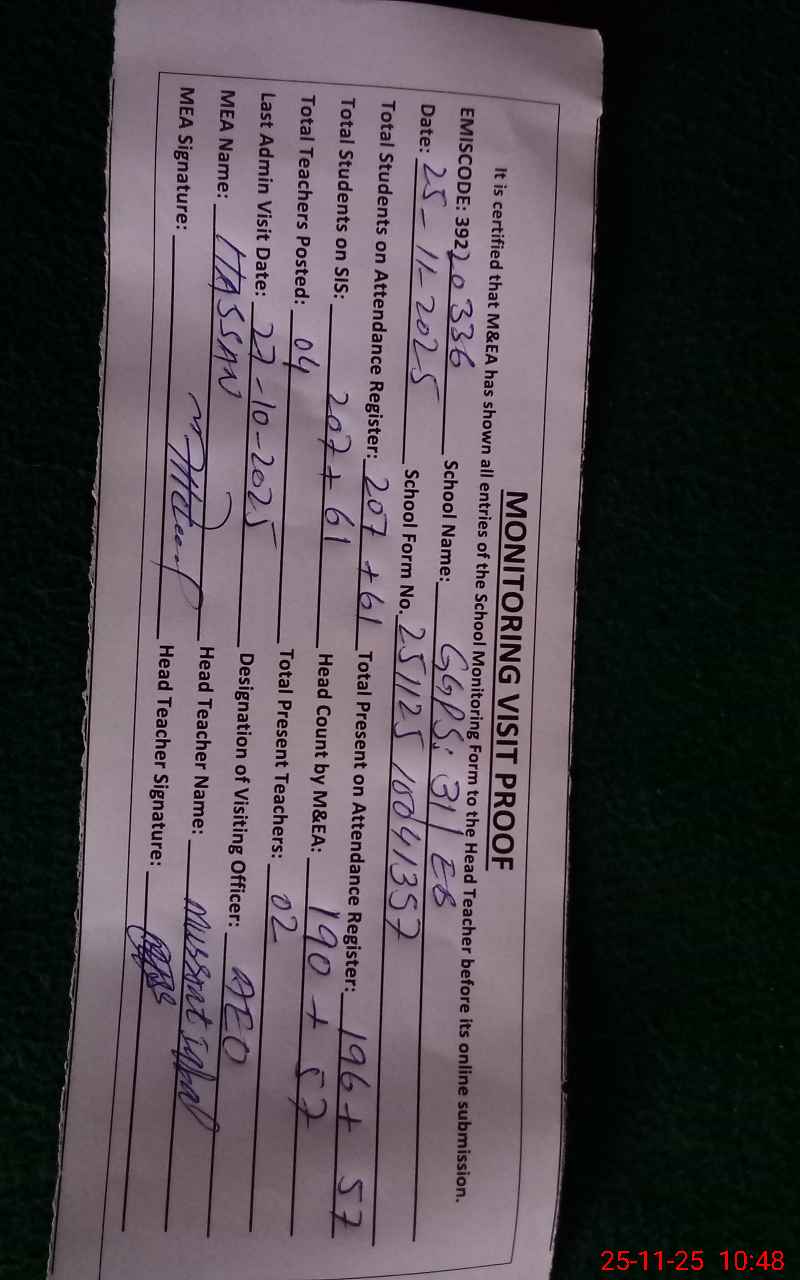 MONITORING VISIT PROOF
It is certified that M&EA has shown all entries of the School Monitoring Form to the Head Teacher before its online submission.
EMISCODE: 39220336 School Name: GGPS: 31/EB
Date: 25-11-2025 School Form No. 25112510041357
Total Students on Attendance Register: 207+61 Total Present on Attendance Register: 196+57
Total Students on SIS: 207+61 Head Count by M&EA: 190+57
Total Teachers Posted: 04 Total Present Teachers: 02
Last Admin Visit Date: 27-10-2025 Designation of Visiting Officer: AEO
MEA Name: HASSAN Head Teacher Name: Mussrat Iqbal
MEA Signature: Head Teacher Signature:
25-11-25 10:48